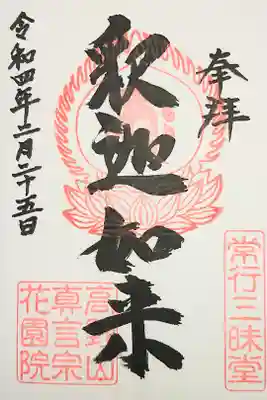 奉拝
釈迦如来
令和四年二月二十五日
常行三昧堂
高野山
真言宗
花園院